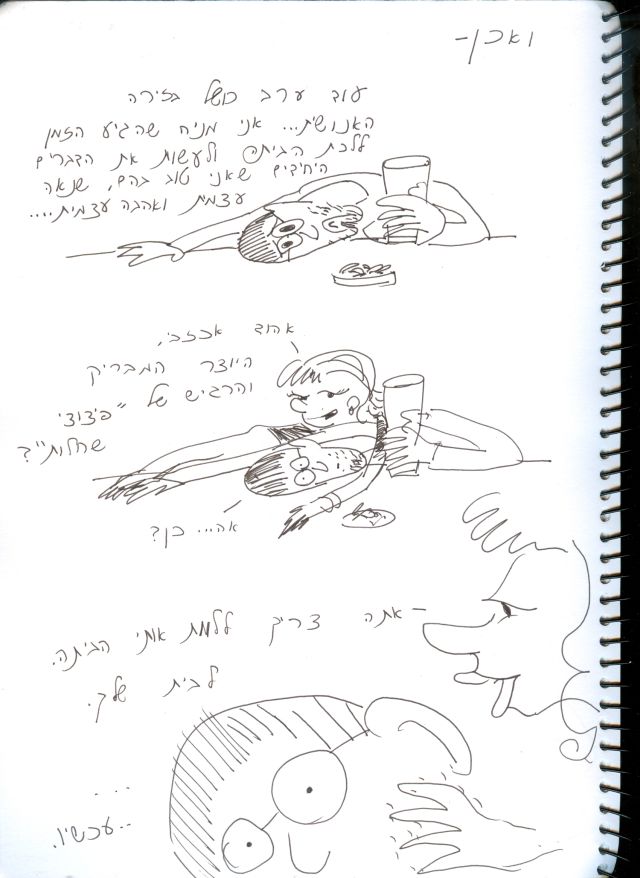 ואכן-
עוד ערב כושל בזירה
האנושית... אני מניח שהגיע הזמן
ללכת הביתה ולעשות את הדברים
היחידים שאני טוב בהם, שנאה
עצמית ואהבה עצמית....
אהוד אכזב,
היוצר המבריק
והרגיש של "פיצוצי
שחלות"?
אה... כן?
אתה צריך ללוות אותי הביתה.
לבית שלך.
....
..עכשיו.